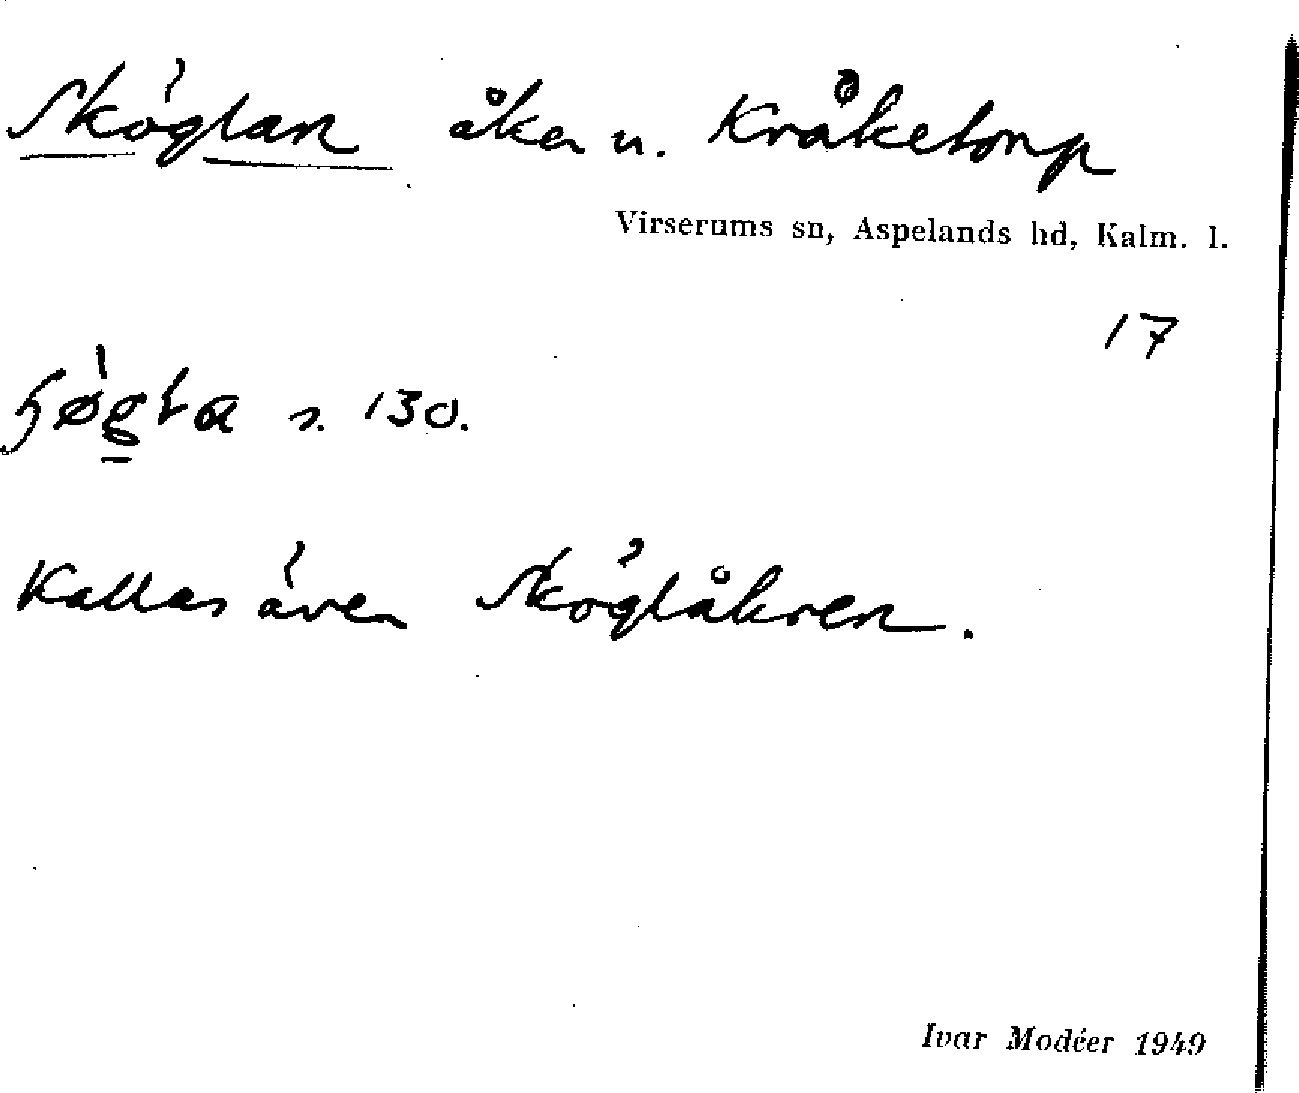 Sköglan åker n. Kråketorp
Virserums sn, Aspelands hd, Kalm. l.
17
s. 130.
Kallas även Sköglåkren.
Ivar Modéer 1949